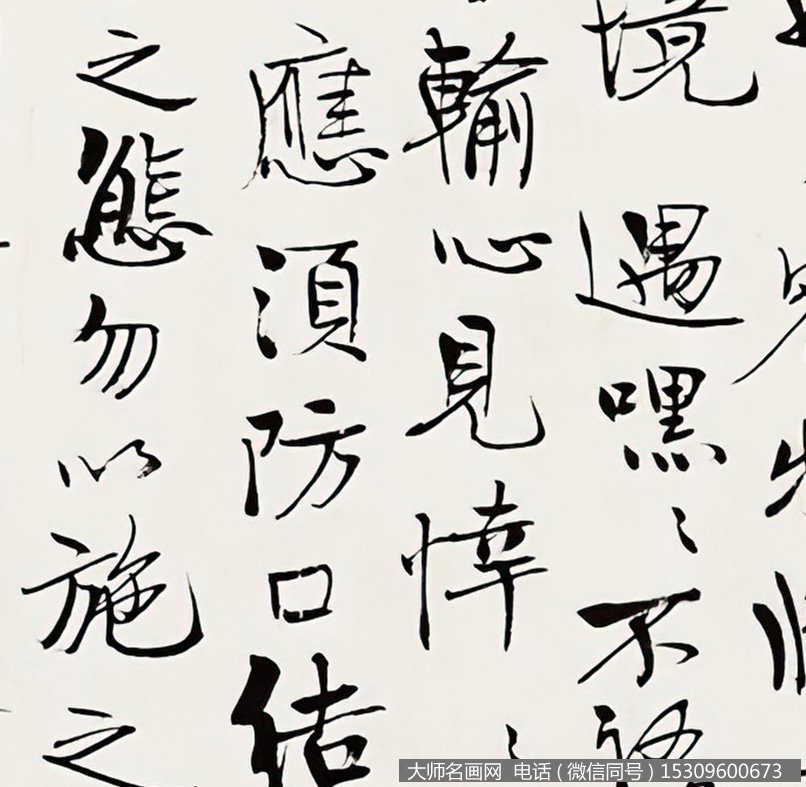 境遇嘿々不語
輸心見悻々
應須防口結
之態勿以施之
大师名画网 电话(微信同号)15309600673